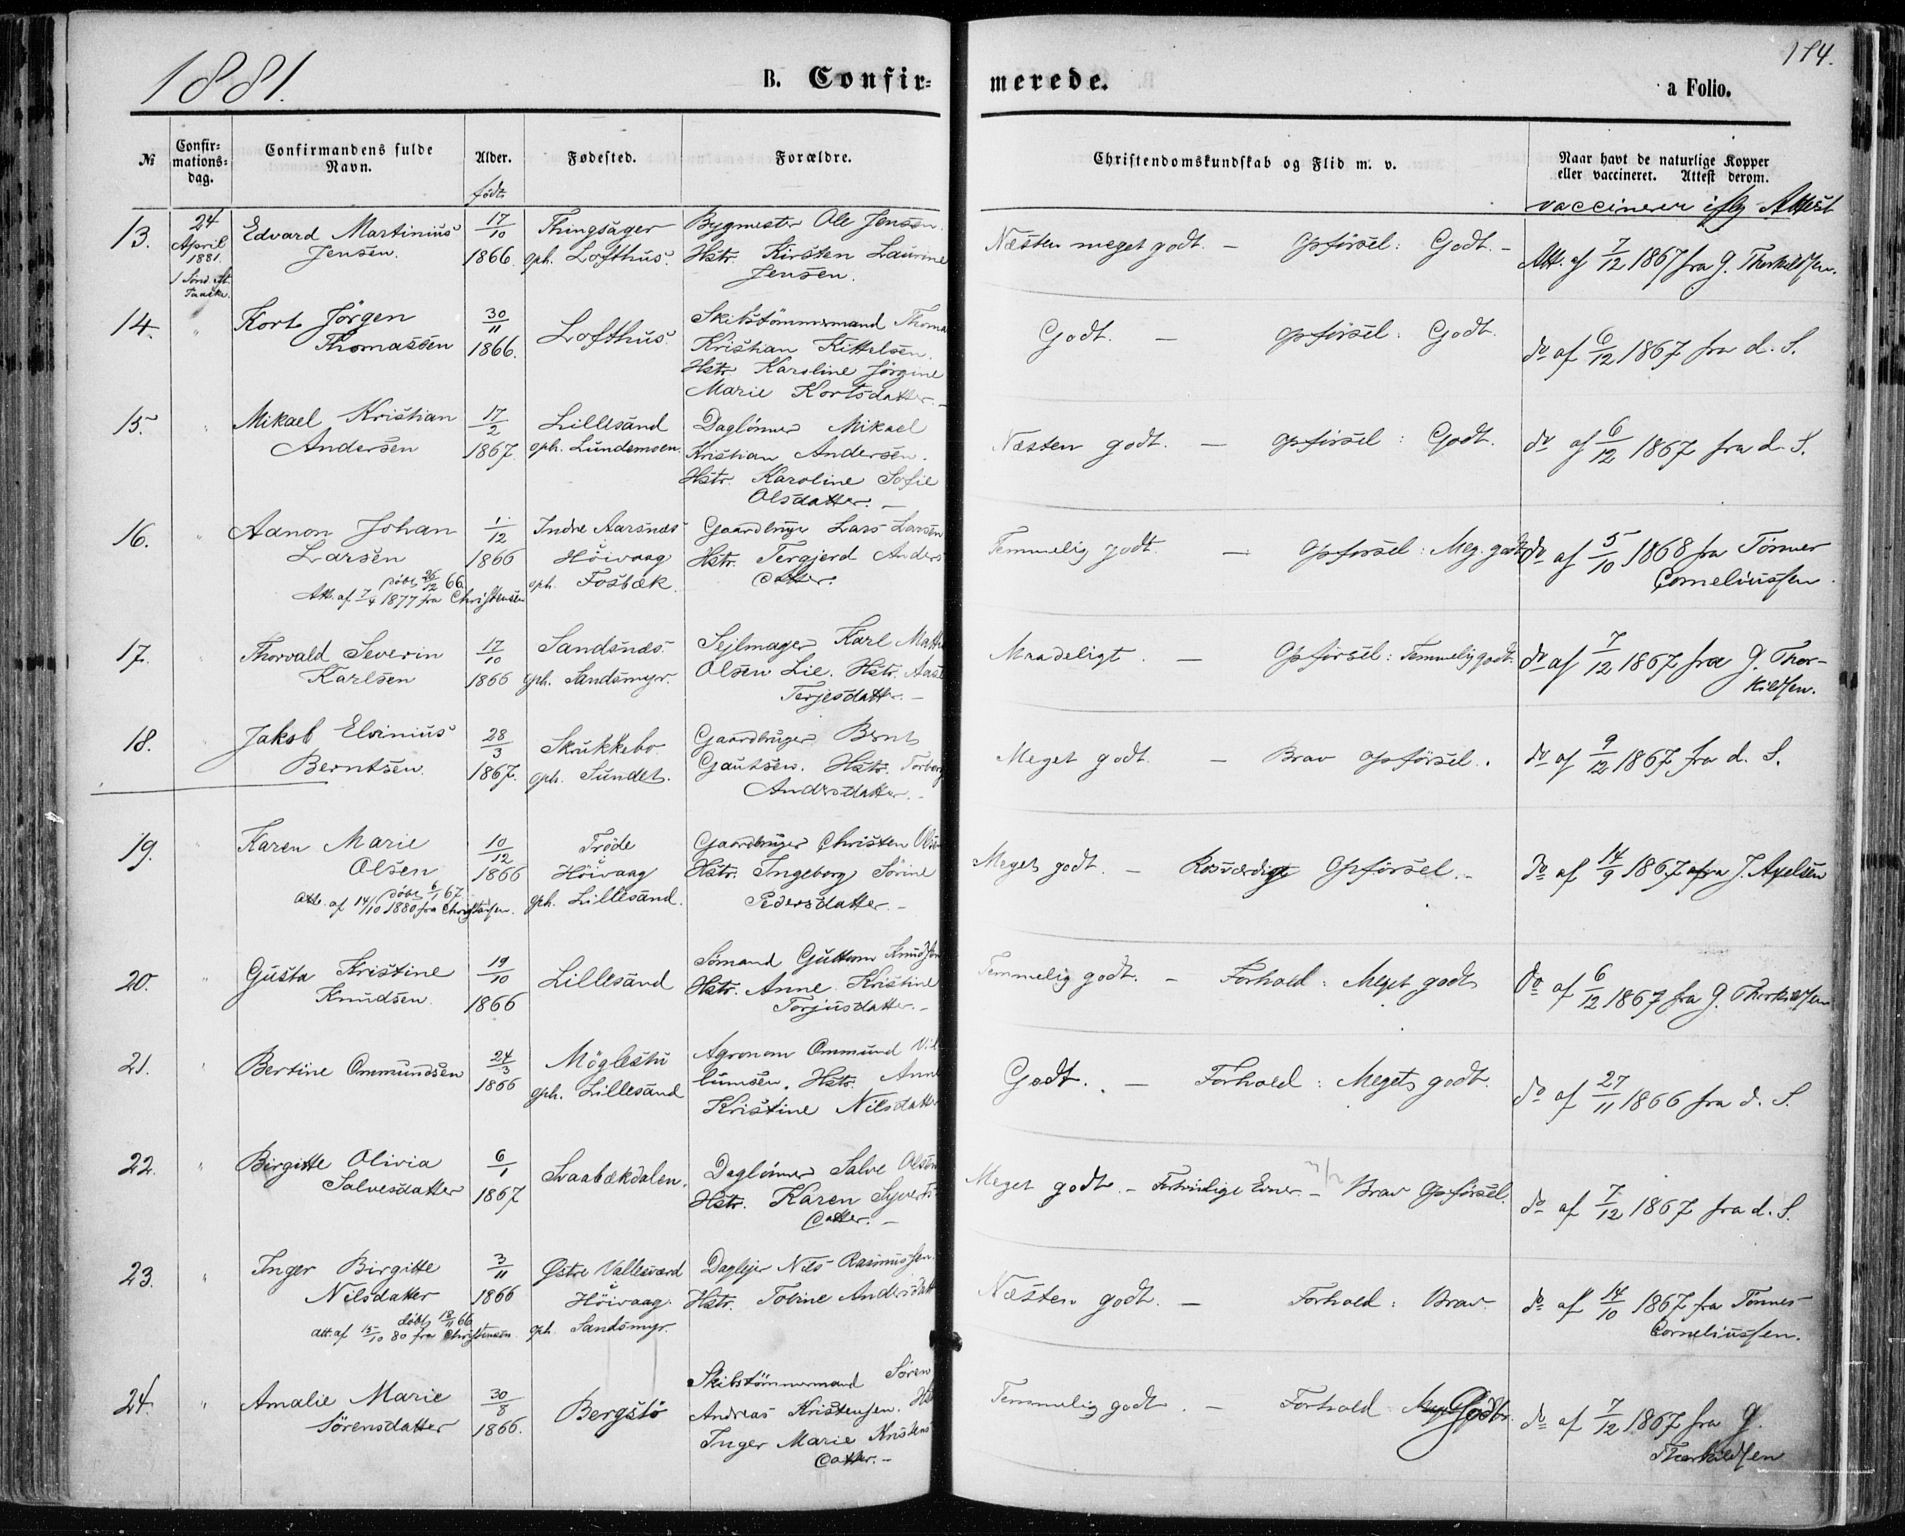 1881.
B. Confir-
merede.
a Folio.
№
Confir-
mations-
dag.
Confirmandens fulde
Navn.
Alder.
født
Fødested.
Forældre.
Christendomskundskab og Flid m. v.
Naar havt de naturlige Kopper
eller vaccineret. Attest derom.
13.
24
April
1881.
Edvard Martinius
Jensen.
17/10
1866.
Thingsager
oph. Lofthus.
Bygmester Ole Jensen.
Hstr. Kirsten Laurine
Jensen.
Næsten meget godt. – Opførsel: Godt. –
Att. af 7/12 1867 fra G. Therkildsen.
14.
"
Kort Jörgen
Thomassen
30/11
1866.
Lofthus.
Skibstömmermand Thoma
Kristian Kittelsen.
Hstr. Karoline Jørgine
Marie Kortsdatter. –
Godt. – Opførsel: Godt.
do af 6/12 1867 fra d. S.
15.
"
Mikael Kristian
Andersen
17/2
1867.
Lillesand
oph. Lundemoen.
Daglönner Mikael
Kristian Andersen.
Hstr. Karoline Sofie
Olsdatter. –
Næsten godt. – Opførsel: Godt.
do af 6/12 1867 fra d. S.
16.
"
Aanon Johan
Larsen
døbt 26/12 66.
Att. af 7/4 1877 fra Christensen
1/12
1866
Indre Aarsnæs
i
Höivaag
oph. Fosbæk.
Gaardbruger Lars Larsen
Hstr. Tergjerd Anders
datter.
Temmelig godt. – Opførsel: Meg. godt
do af 5/10 1868 fra Tönnes
Corneliussen.
17.
"
Thorvald Severin
Karlsen
17/10
1866
Sandsnæs.
oph. Sandsmyr.
Sejlmager Karl Math
Olsen Lie. Hstr. Aase
Terjesdatter. –
Maadeligt. – Opførsel: Temmelig godt.
do af 7/12 1867 fra G. Ther-
kildsen.
18.
"
Jakob Elvinius
Berntsen.
28/3
1867.
Skukkebo
oph. Sundet.
Gaardbruger Bernt
Gautsen. Hstr. Torborg
Andersdatter. –
Meget godt. – Brav Opførsel.
do af 9/12 1867 fra d. S.
19.
"
Karen Marie
Olsen
døbt 6/1 67.
Att. af 14/10 1880 fra Christensen.
10/12
1866
Tröde
i
Höivaag
oph. Lillesand.
Gaardbruger Christen Olsen
Hstr. Ingeborg Sörine
Pedersdatter. –
Meget godt. – Rosværdig Opførsel. –
do af 14/9 1867 fra J. Axelsen
20.
"
Gusta Kristine
Knudsen.
19/10
1866
Lillesand
Sømand Guttorm Knudsen
Hstr. Anne Kristine
Torjusdatter. –
Temmelig godt. – Forhold: Meget godt
do af 6/12 1867 fra G. Therkildsen
21.
"
Bertine Ommundsen
24/3
1866
Möglestu
oph. Lillesand
Agronom Ommund Vil
lumsen. Hstr. Anne
Kristine Nilsdatter
Godt. – Forhold: Meget godt.
do af 27/11 1866 fra d. S.
22.
"
Birgitte Olivia
Salvesdatter
6/1
1867
Svaabækdalen.
Daglönner Salve Olsen
Hstr. Karen Syverts
datter. –
Meget godt. – Fortrinlige Evner. – Brav Opførsel.
do af 7/12 1867 fra d. S.
23.
"
Inger Birgitte
Nilsdatter
døbt 18/11 66
att. af 15/10 80 fra Christensen.
3/11
1866
Østre Vallesværd
i
Höivaag.
oph. Sandsmyr.
Daglejer Nils Rasmussen.
Hstr. Tobine Andersdatt
Næsten godt. – Forhold: Brav.
do af 14/10 1867 fra Tönnes
Corneliussen.
24.
"
Amalie Marie
Sörensdatter
30/8
1866.
Bergstö
Skibstömmermand Sören
Andreas Kristensen. Hst
Inger Marie Kristens
datter. –
Temmelig godt. – Forhold: Godt.
do af 7/12 1867 fra G.
Therkildsen